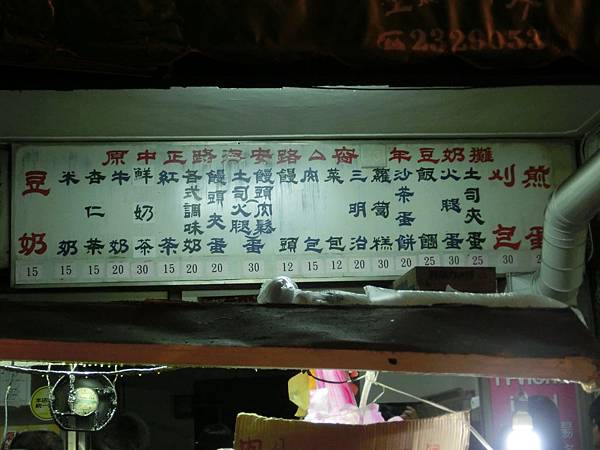 ☎2329053
原中正路海安路公 年豆奶攤
豆奶 15
米奶 15
杏仁茶 15
牛奶 20
鮮奶茶 30
紅茶 15
各式調味奶 20
饅頭夾蛋 20
土司火腿蛋
饅頭肉鬆 30
饅頭 12
肉包 15
菜包 12
三明治
蘿蔔糕
沙茶蛋餅 20
飯糰 25
火腿蛋 30
土司夾蛋 25
刈包 30
煎蛋